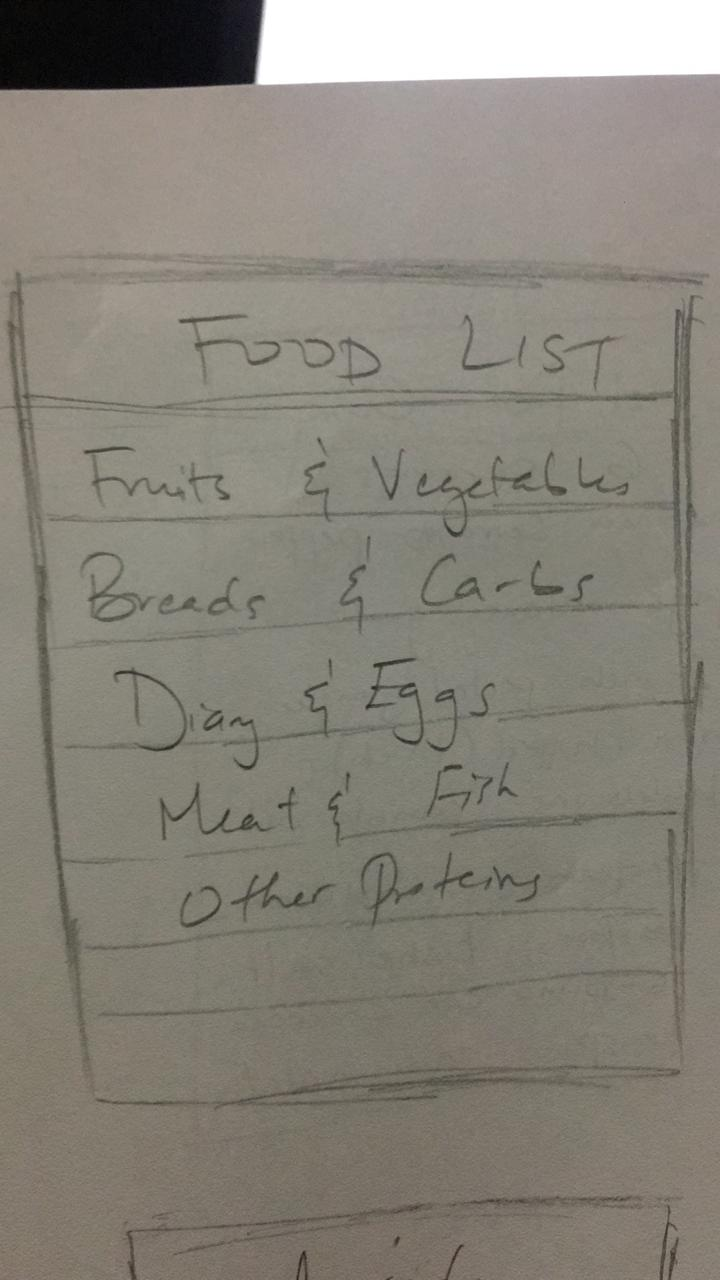 FOOD LIST
Fruits & Vegetables
Breads & Carbs
Diary & Eggs
Meat & Fish
Other Proteins